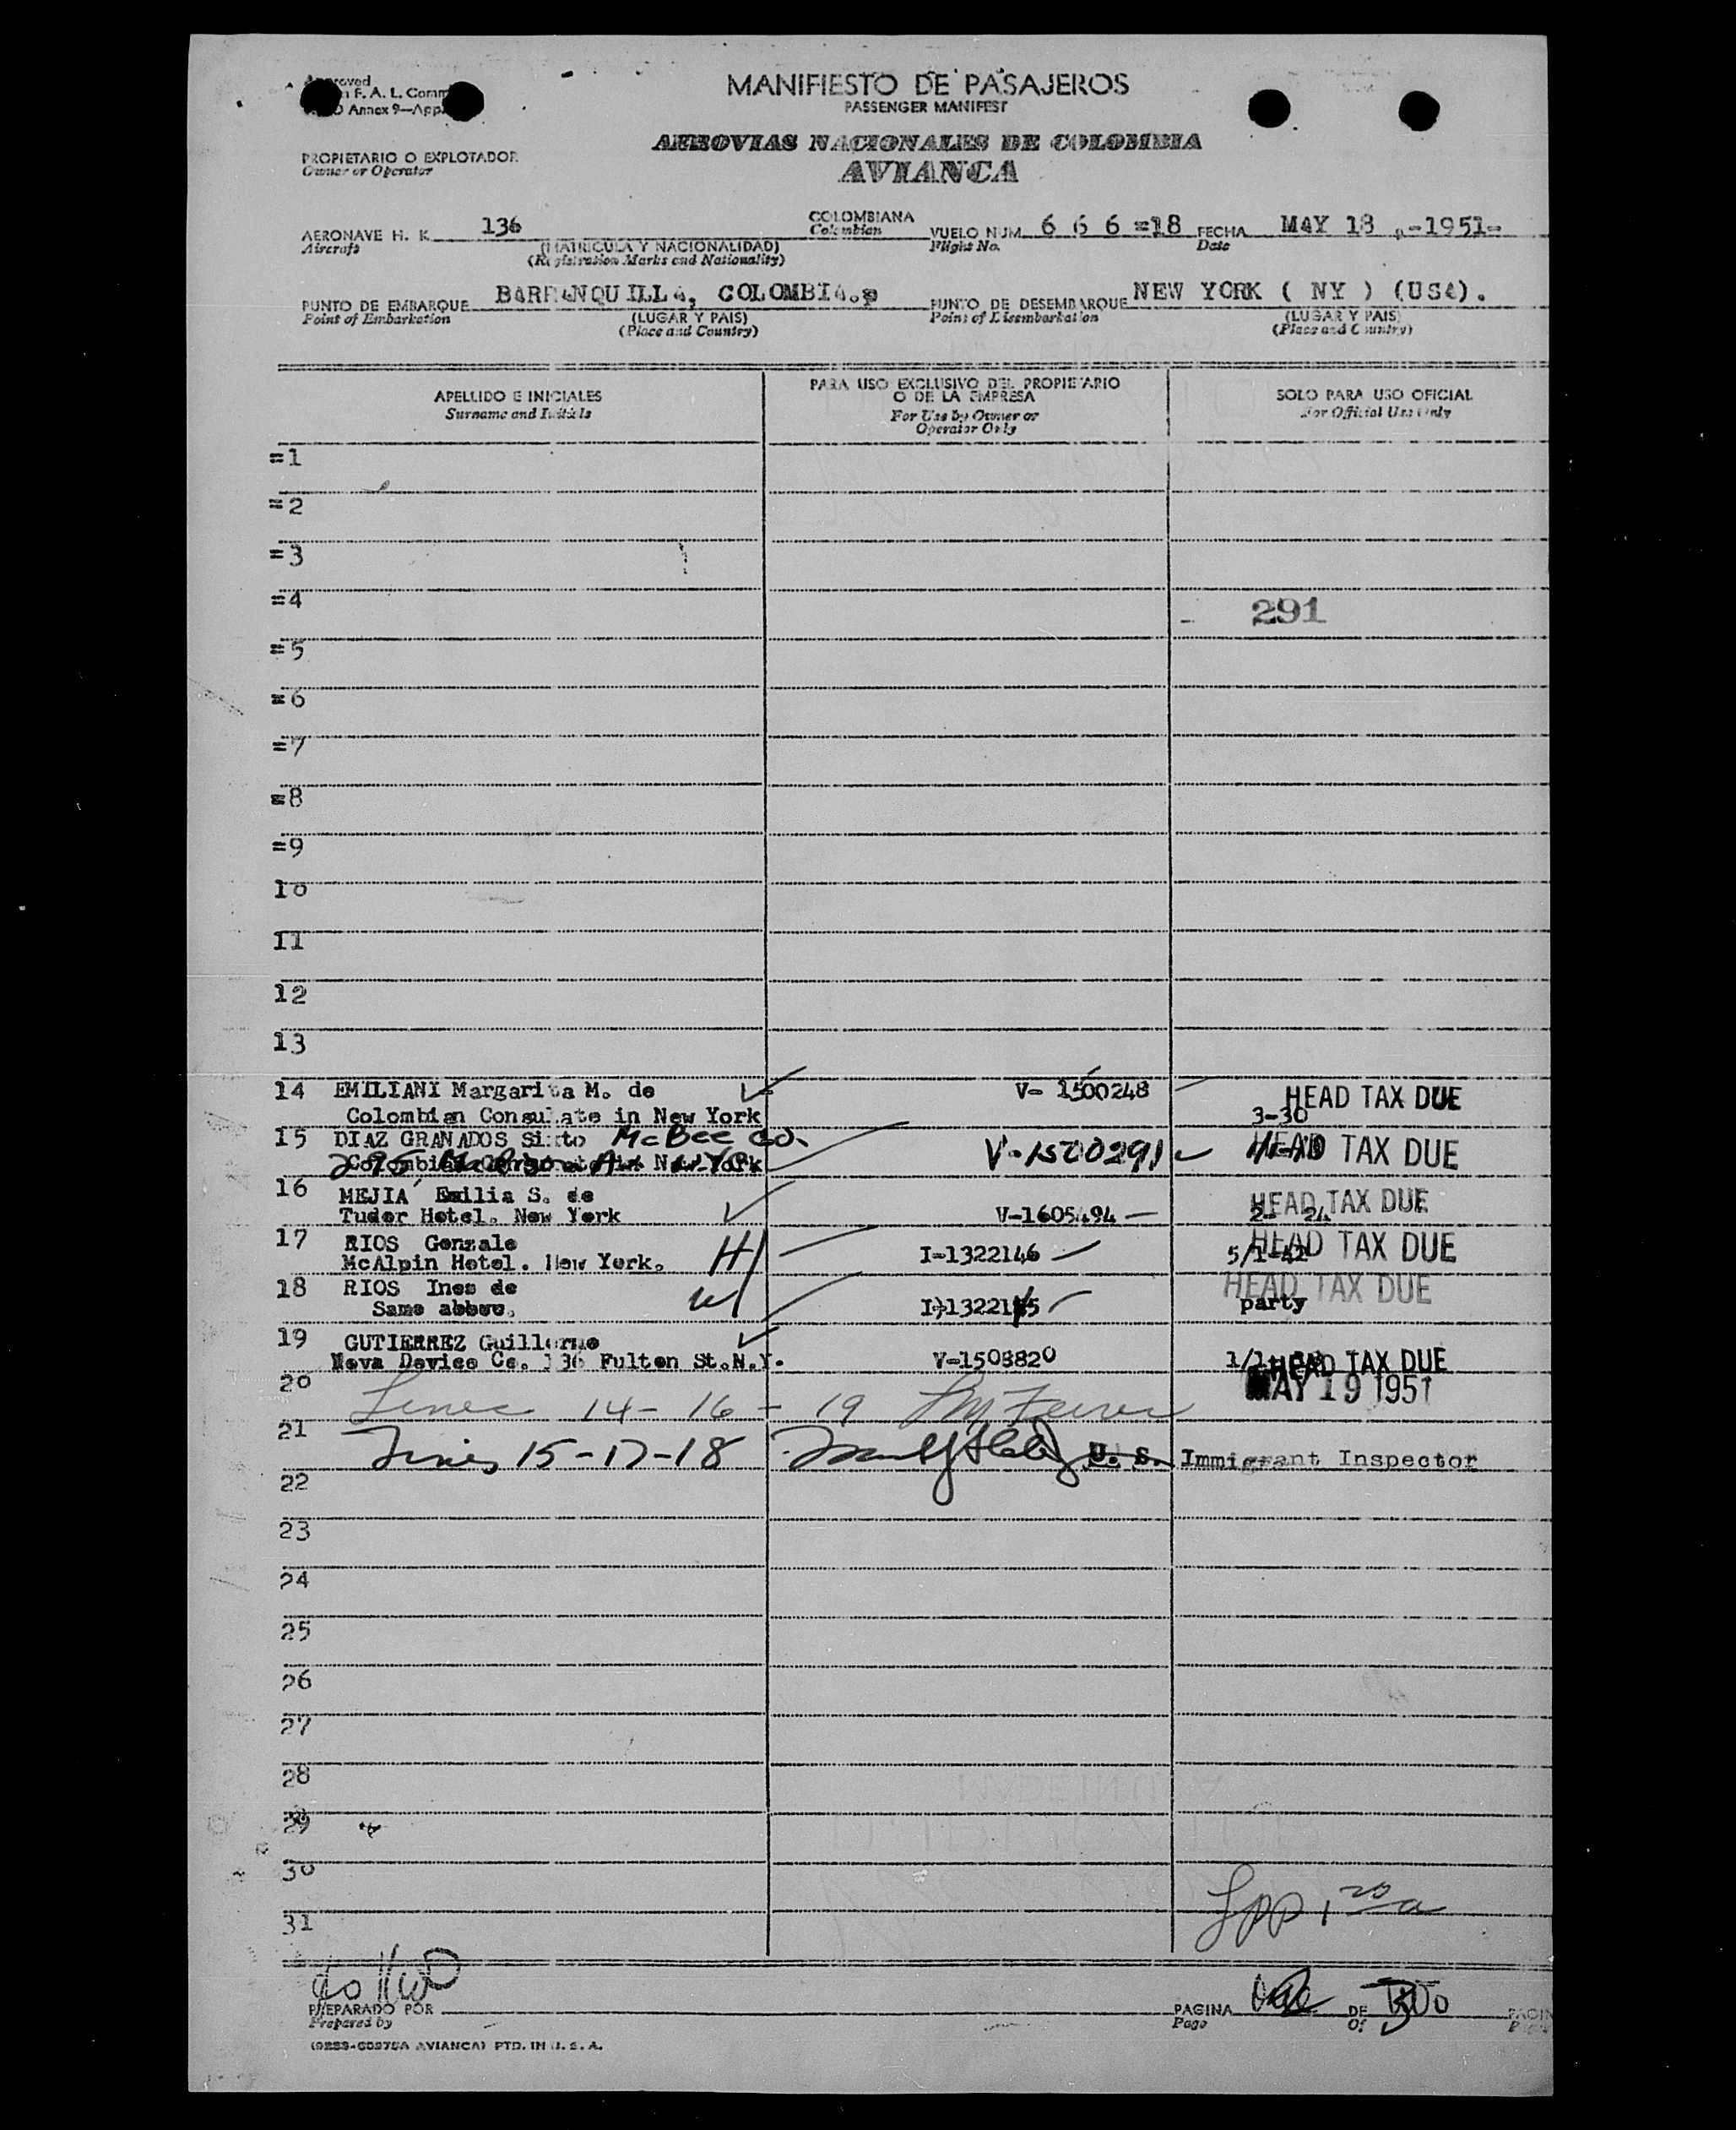 Approved
F. A. L. Comm
Annex 9—App.
MANIFIESTO DE PASAJEROS
PASSENGER MANIFEST
AEROVIAS NACIONALES DE COLOMBIA
AVIANCA
PROPIETARIO O EXPLOTADOR
Owner or Operator
AERONAVE H. K. 136 COLOMBIANA VUELO NUM. 6 6 6 =18 FECHA MAY 18 -1951-
Aircraft (MATRICULA Y NACIONALIDAD) Colombian Flight No. Date
(Registration Marks and Nationality)
PUNTO DE EMBARQUE BARRANQUILLA, COLOMBIA. PUNTO DE DESEMBARQUE NEW YORK ( NY ) (USA).
Point of Embarkation (LUGAR Y PAIS) Point of Disembarkation (LUGAR Y PAIS)
(Place and Country) (Place and Country)
APELLIDO E INICIALES PARA USO EXCLUSIVO DEL PROPIETARIO O DE LA EMPRESA SOLO PARA USO OFICIAL
Surname and Initials For Use by Owner or Operator Only For Official Use Only
=1
=2
=3
=4 291
=5
=6
=7
=8
=9
10
11
12
13
14 EMILIANI Margarita M. de V- 1500248 HEAD TAX DUE
Colombian Consulate in New York 3-30
15 DIAZ GRANADOS Sixto McBee Co. V-1500291 HEAD TAX DUE
295 New York
16 MEJIA Emilia S. de HEAD TAX DUE
Tudor Hotel. New York V-1605494 2- 24
17 RIOS Gonzalo H HEAD TAX DUE
McAlpin Hotel. New York. I-1322146 5/1-42
18 RIOS Ines de W HEAD TAX DUE
Same abbove. I-1322145 party
19 GUTIERREZ Guillermo
Nova Device Co. 136 Fulton St.N.Y. V-1508820 HEAD TAX DUE
20 Lines 14- 16 - 19 MAY 19 1951
21 Lines 15-17-18 U. S. Immigrant Inspector
22
23
24
25
26
27
28
29
30
31
PREPARADO POR PAGINA DE
Prepared by Page Of
(9289-G0975A AVIANCA) PTD. IN U. S. A.